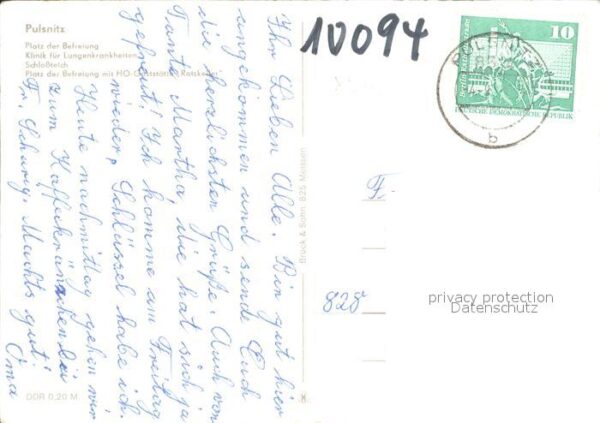 Pulsnitz
Platz der Befreiung
Klinik für Lungenkrankheiten
Schloßteich
Platz der Befreiung mit HO-Gaststätte „Ratskeller“
10094
10
DEUTSCHE DEMOKRATISCHE REPUBLIK
PULSNITZ
b
Ihr Lieben Alle. Bin gut hier
angekommen und sende Euch
die herzlichsten Grüße. Auch von
Tante Martha, die hat sich ja
gefreut! Ich komme am Freitag
wieder, Schlüssel habe ich.
Heute nachmittag gehen wir
zum Kaffekränzchen bei
Fr. Schurig. Machts gut!
Oma
Brück & Sohn, 825 Meissen
F.
828
privacy protection
Datenschutz
DDR 0,20 M
K